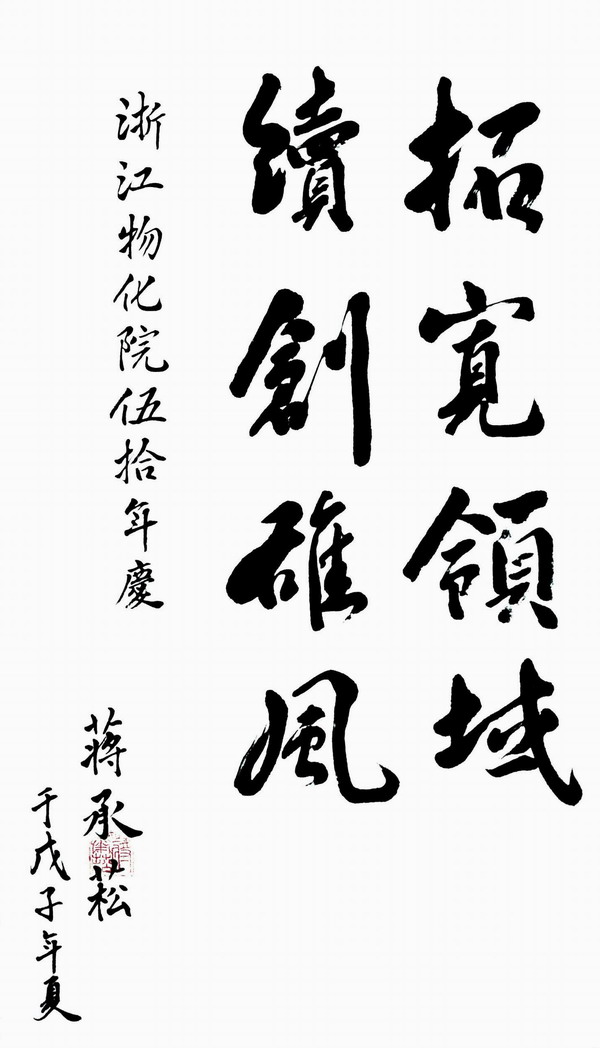 拓寬領域
續創雄風
浙江物化院伍拾年慶
蔣承菘
于戊子年夏